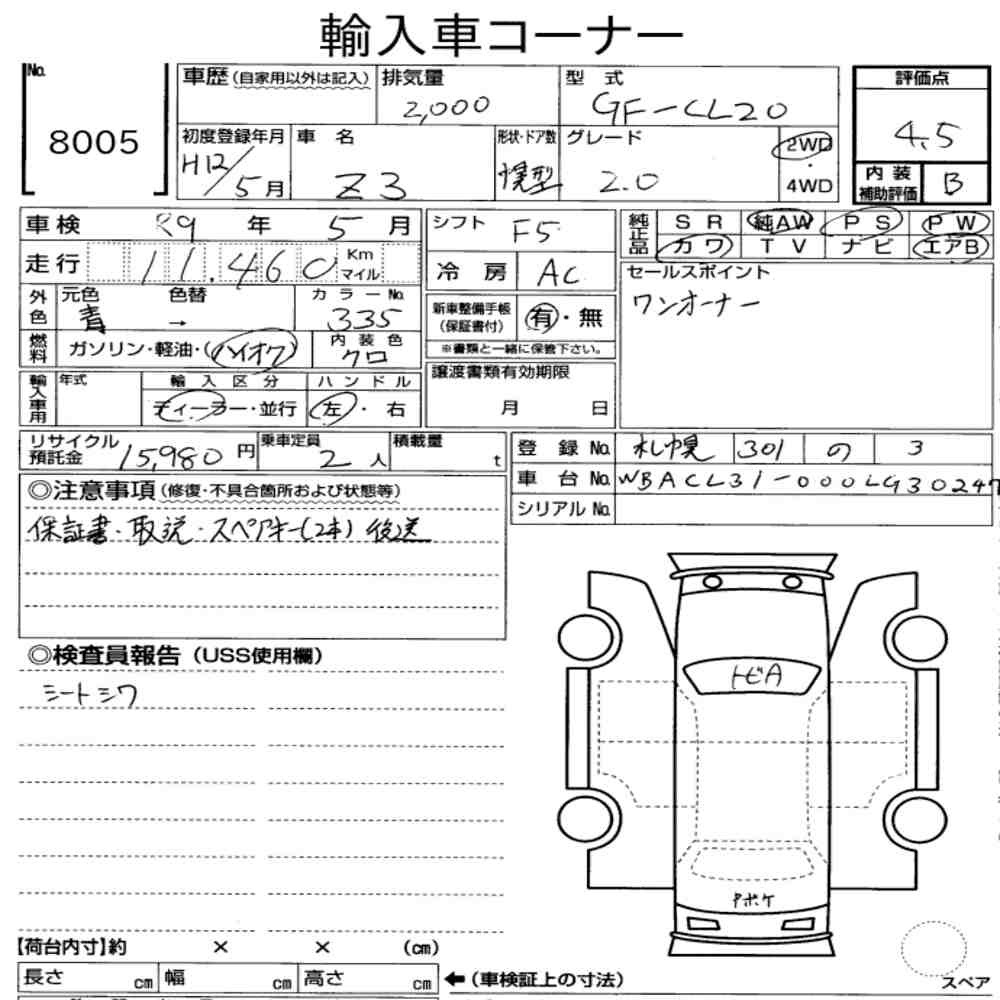 輸入車コーナー
No. 8005
車歴(自家用以外は記入) 排気量 2,000 型式 GF-CL20
初度登録年月 H12/5月 車名 Z3 形状・ドア数 グレード 2.0 2WD・4WD
評価点 4.5
内装補助評価 B
車検 R9年 5月
走行 11,460 Km マイル
外色 元色 青 色替 → カラーNo. 335
燃料 ガソリン・軽油・ハイオク 内装色 クロ
輸入車用 年式 輸入区分 ディーラー・並行 ハンドル 左・右
リサイクル預託金 15,980円 乗車定員 2人 積載量 t
シフト F5
冷房 AC
新車整備手帳(保証書付) 有・無
※書類と一緒に保管下さい。
譲渡書類有効期限
月 日
純正品 SR 純AW PS PW
カワ TV ナビ エアB
セールスポイント
ワンオーナー
登録No. 札幌 301 の 3
車台No. WBACL31-000LG30247
シリアルNo.
◎注意事項(修復・不具合箇所および状態等)
保証書・取説・スペアキー(2本)後送
◎検査員報告(USS使用欄)
シートシワ
トビA
Pボケ
【荷台内寸】約 × × (cm)
長さ cm 幅 cm 高さ cm
←(車検証上の寸法)
スペア